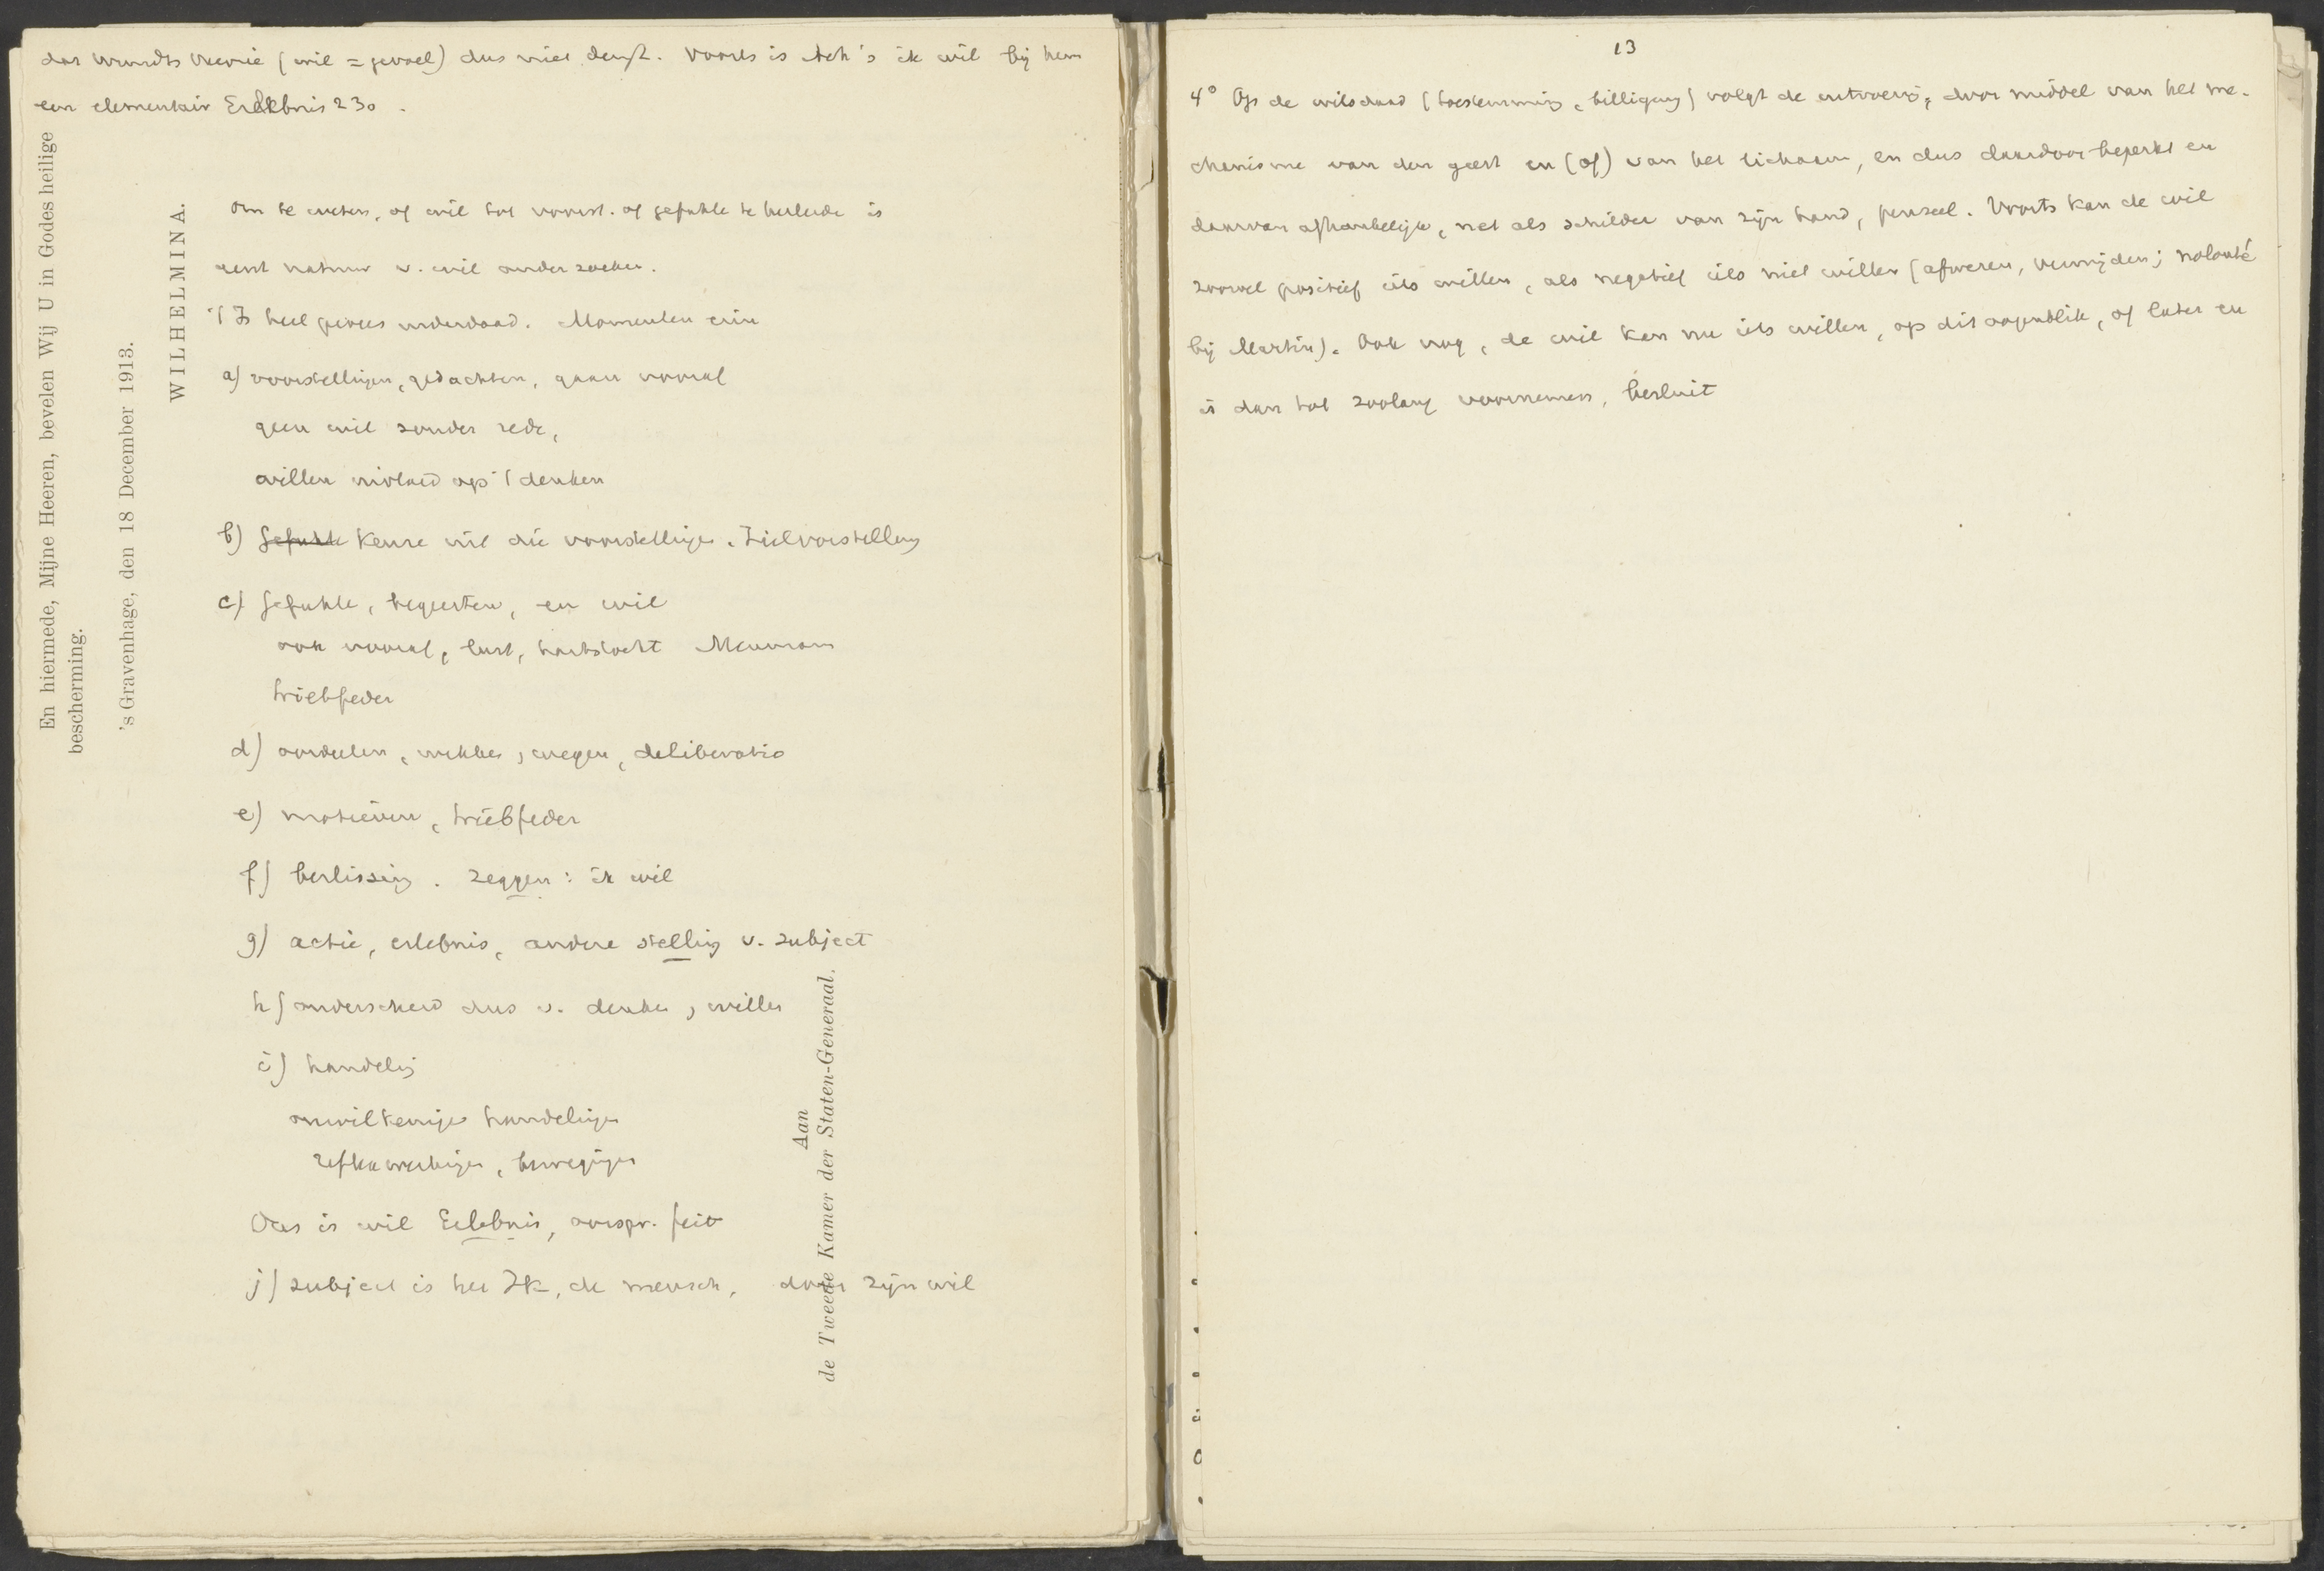 dat Wundts theorie (wil = gevoel) dus niet deugt. Voorts is Ach's ik wil bij hem
een elementair Erlebnis 230.
om te weten, of wil tot voorst. of gefuhle te herleide is
eerst natuur v. wil onderzoeken.
't Is heel proces inderdaad. Momenten erin
a) voorstellingen, gedachten, gaan vooraf
geen wil zonder rede,
willen invloed op 't denken
b) Gefuhle Keuze uit die voorstellingen. Zielvorstellung
c) Gefuhle, begeerten, en wil
ook vooraf, lust, hartstocht Meumann
triebfeder
d) oordeelen, wikken, wegen, deliberatio
e) motieven, triebfeder
f) beslissing. zeggen: ik wil
g) actie, erlebnis, andere stelling v. subject
h) onderscheid dus v. denken, willen
i) handeling
onwillkeurige handelingen
reflexwerkingen, bewegingen
Dus is wil Erlebnis, oorspr. feit
j) subject is het Ik, de mensch, door zijn wil
En hiermede, Mijne Heeren, bevelen Wij U in Godes heilige
bescherming.
's Gravenhage, den 18 December 1913.
WILHELMINA.
Aan
de Tweede Kamer der Staten-Generaal.
13
4° Op de wilsdaad (toestemming, billigung) volgt de uitvoering, door middel van het me-
chanisme van den geest en (of) van het lichaam, en dus daardoor beperkt en
daarvan afhankelijk, net als schilder van zijn hand, penseel. Voorts kan de wil
zoowel positief iets willen, als negatief iets niet willen (afweren, vermijden; nolonté
bij Martin). Ook nog, de wil kan nu iets willen, op dit oogenblik, of later en
is dan tot zoolang voornemen, besluit